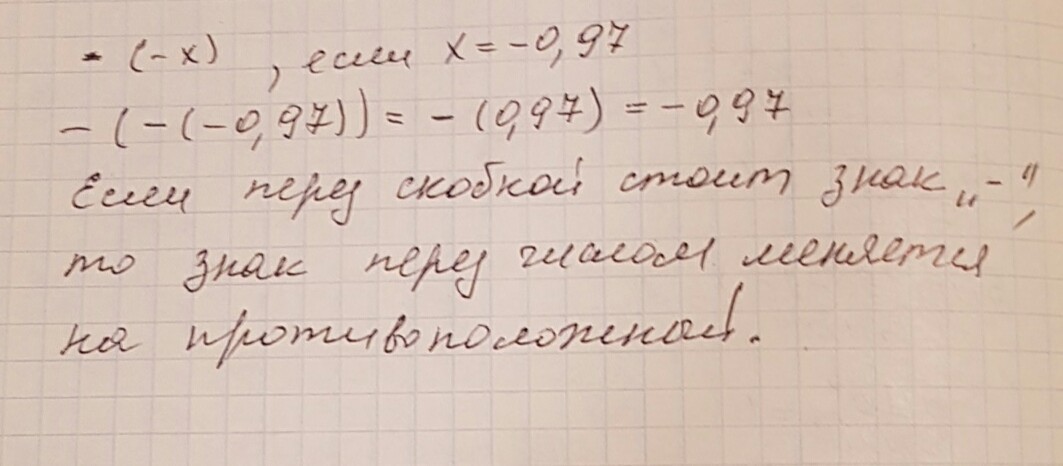 - (-x) , если x = -0,97
- (-(-0,97)) = - (0,97) = -0,97
Если перед скобкой стоит знак „-“,
то знак перед числом меняется
на противоположный.